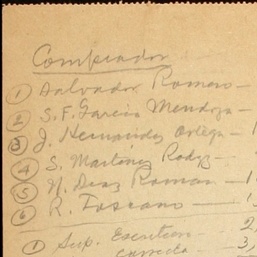 Comprador
① Salvador Romero —
② S. F. Garcia Mendoza —
③ J. Hernandez Ortega — 1
④ S. Martinez Rodz —
⑤ N. Diaz Roman — 1
⑥ R. Toscano — 1
① Sup. Escritura 2,
correcta 3,